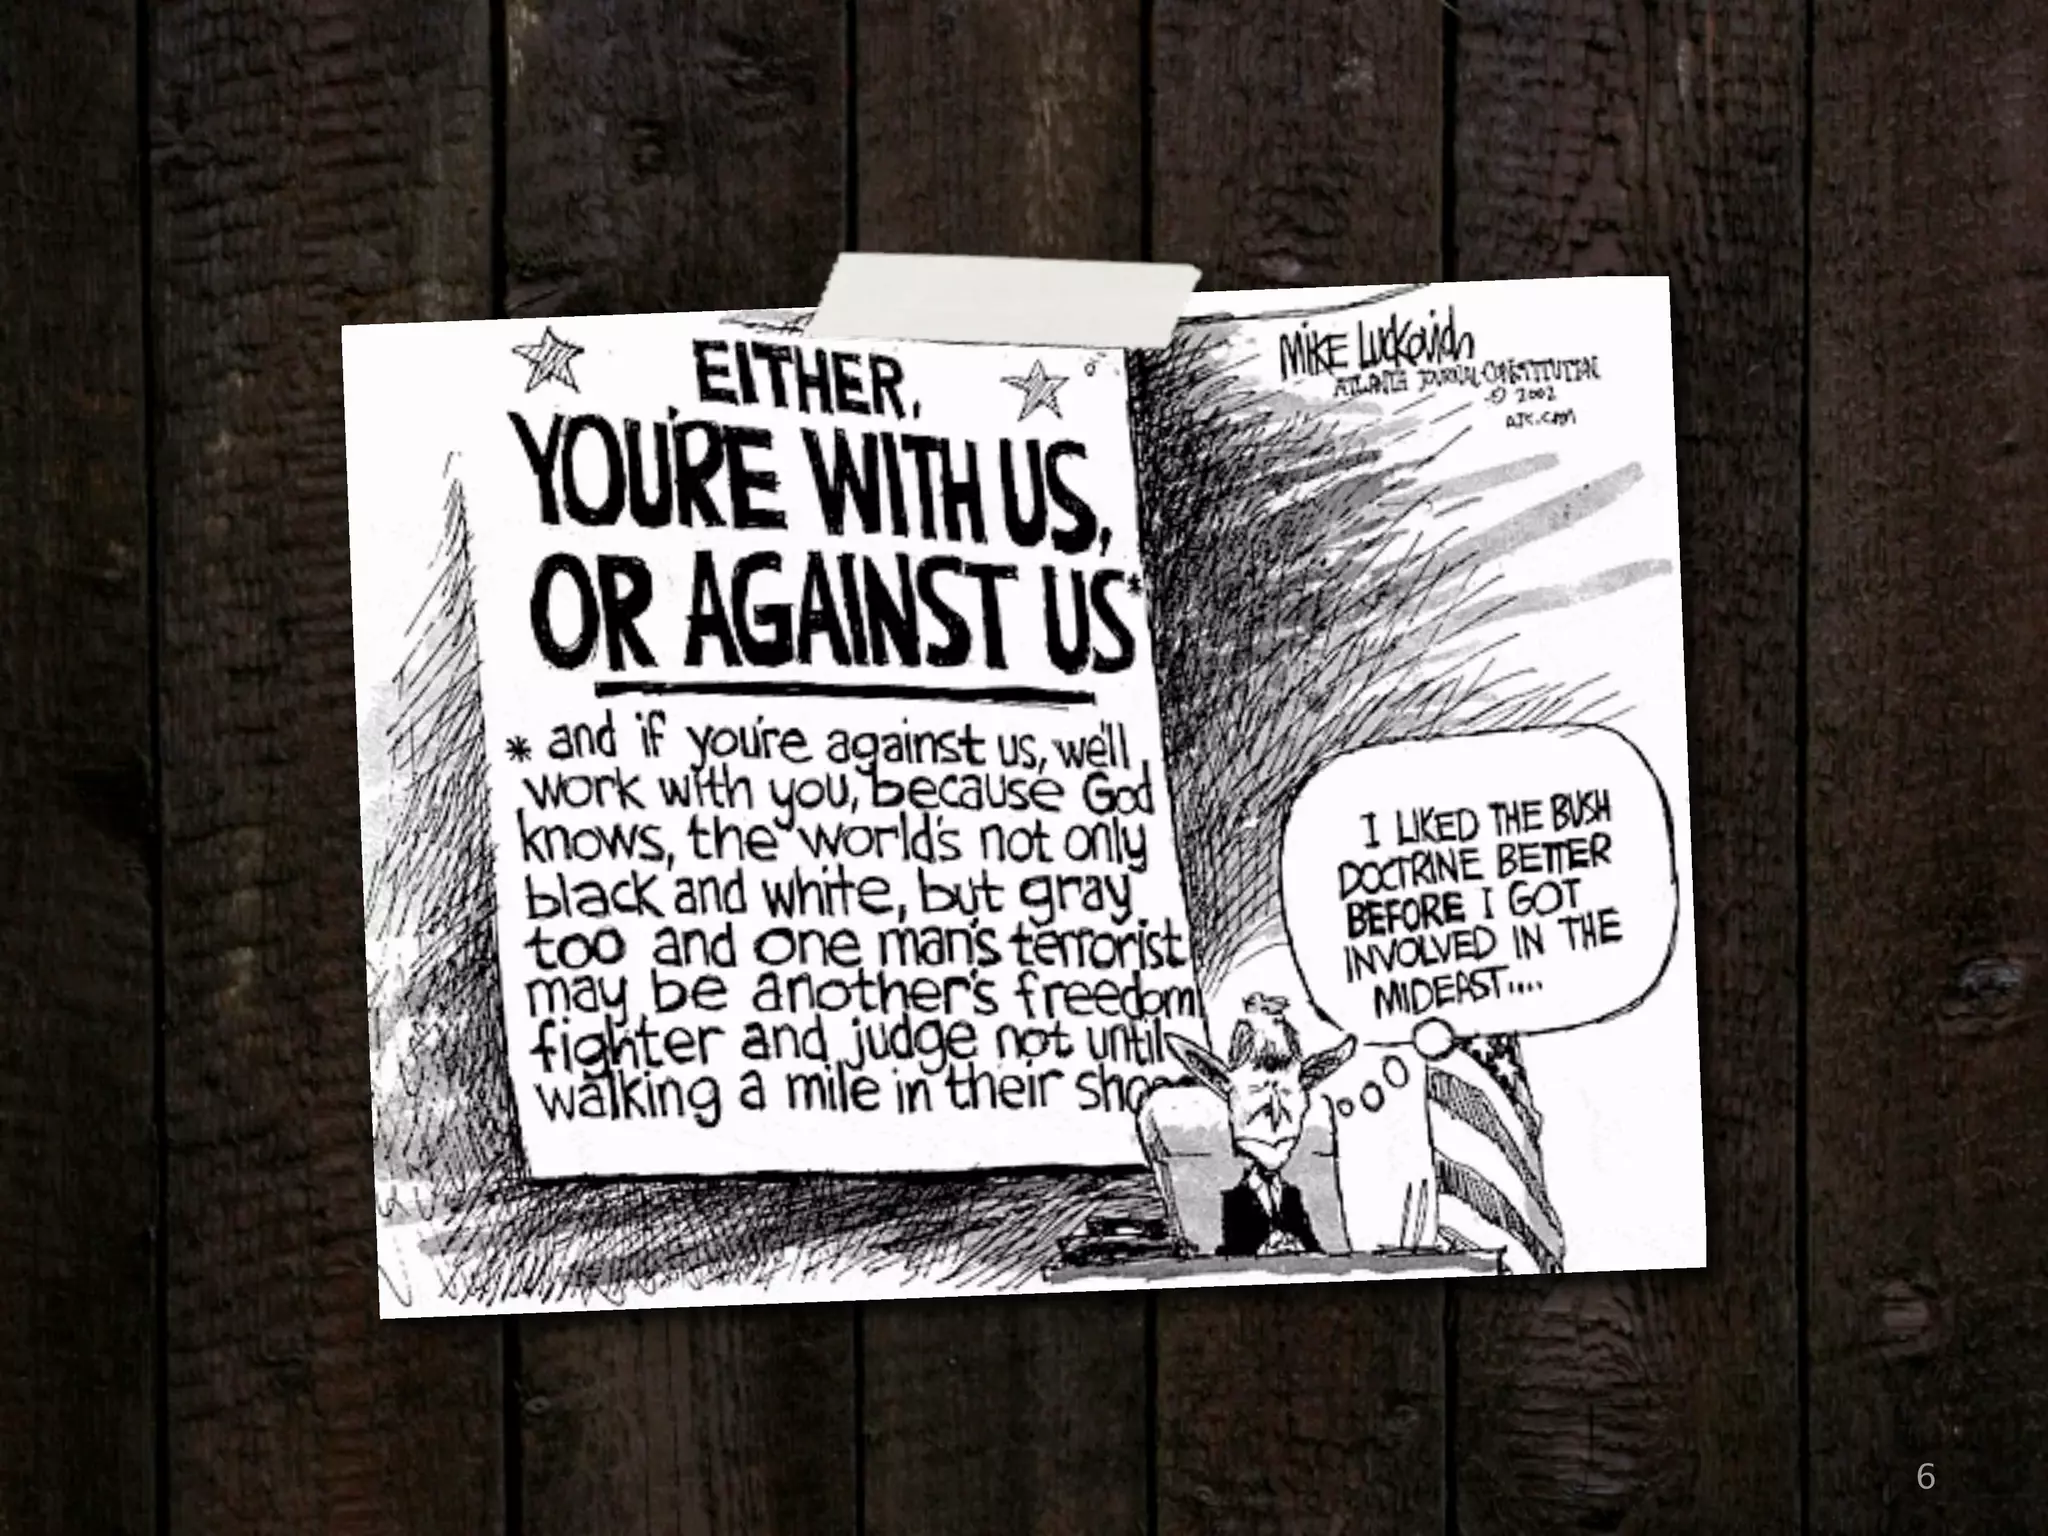 EITHER,
YOU'RE WITH US,
OR AGAINST US*
* and if you're against us, we'll
work with you, because God
knows, the world's not only
black and white, but gray
too and one man's terrorist
may be another's freedom
fighter and judge not until
walking a mile in their
MIKE LUCKOVICH
ATLANTA JOURNAL-CONSTITUTION
© 2002
AJC.COM
I LIKED THE BUSH
DOCTRINE BETTER
BEFORE I GOT
INVOLVED IN THE
MIDEAST....
6